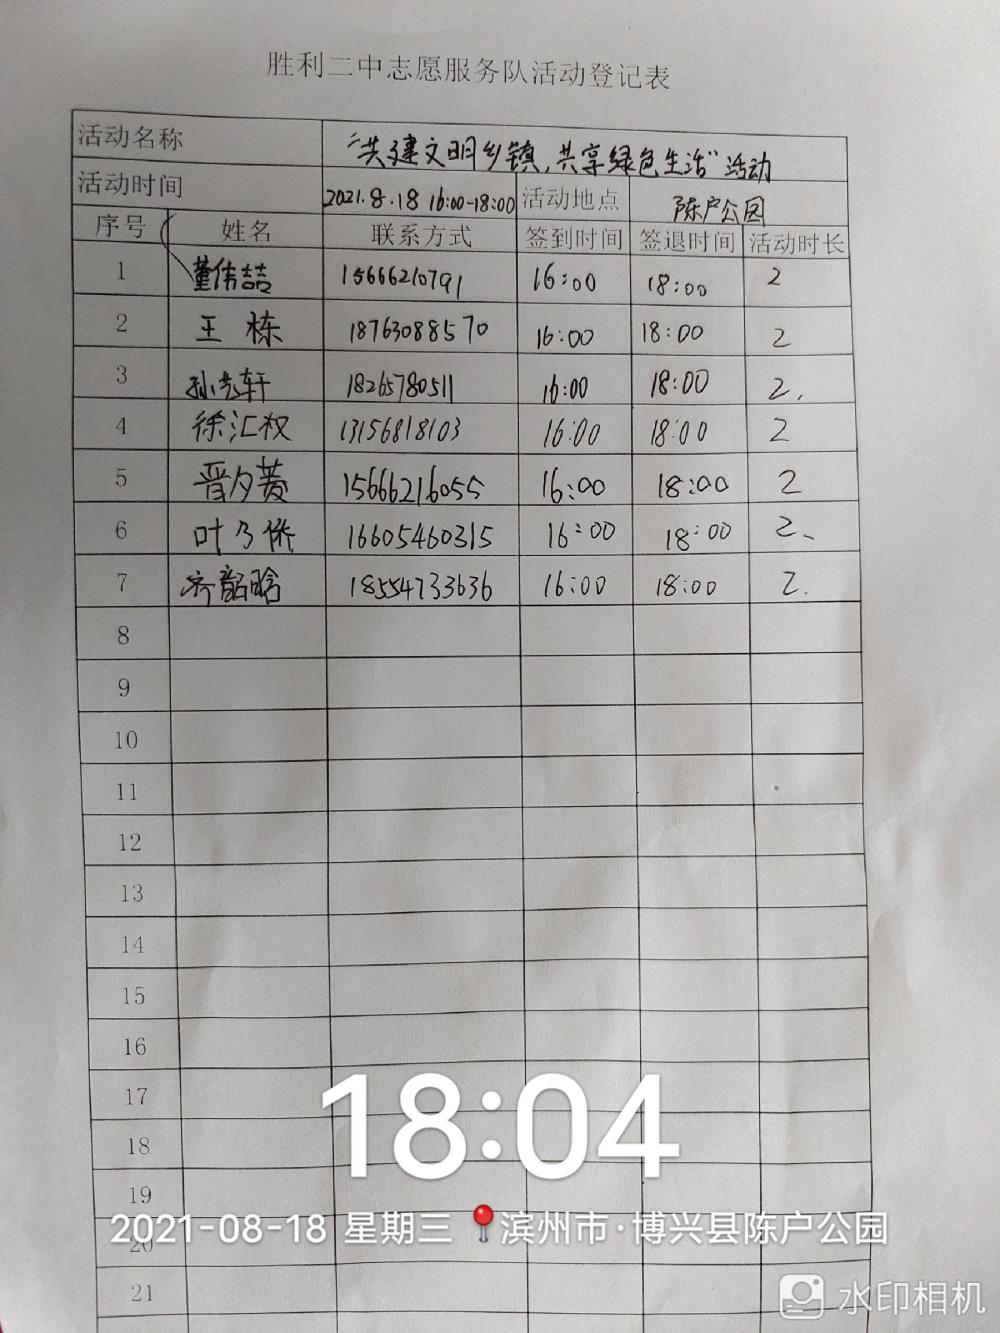 胜利二中志愿服务队活动登记表
活动名称 “共建文明乡镇,共享绿色生活”活动
活动时间 2021.8.18 16:00-18:00 活动地点 陈户公园
序号 姓名 联系方式 签到时间 签退时间 活动时长
1 董伟喆 15666210791 16:00 18:00 2
2 王栋 18763088570 16:00 18:00 2
3 孙艺轩 18265780511 16:00 18:00 2.
4 徐汇权 13156818103 16:00 18:00 2
5 晋夕菱 15666216055 16:00 18:00 2
6 叶乃侨 16605460315 16:00 18:00 2、
7 齐韶晗 18554733636 16:00 18:00 2.
8
9
10
11
12
13
14
15
16
17
18:04
18
19
2021-08-18 星期三 滨州市·博兴县陈户公园
20
21
水印相机